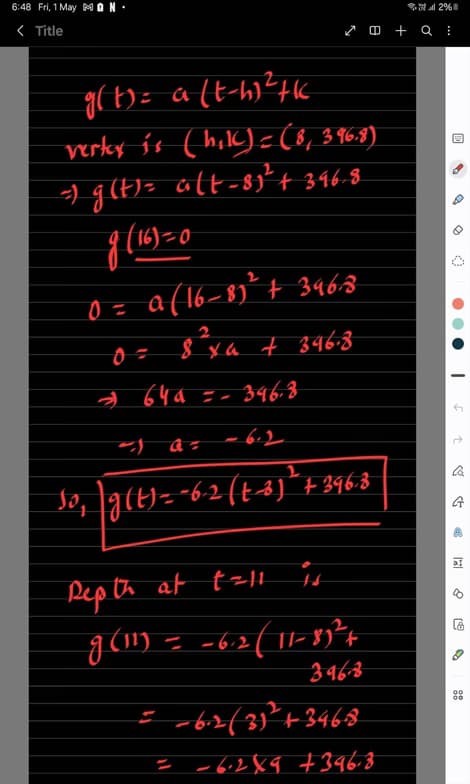 6:48 Fri, 1 May
2%
Title
g(t) = a (t-h)² + k
vertex is (h,k) = (8, 396.8)
⇒ g(t) = a(t-8)² + 396.8
g(16) = 0
0 = a(16-8)² + 396.8
0 = 8² × a + 396.8
⇒ 64a = - 396.8
⇒ a = -6.2
So, g(t) = -6.2 (t-8)² + 396.8
Depth at t=11 is
g(11) = -6.2 ( 11-8)² +
396.8
= -6.2(3)² + 396.8
= -6.2×9 + 396.8